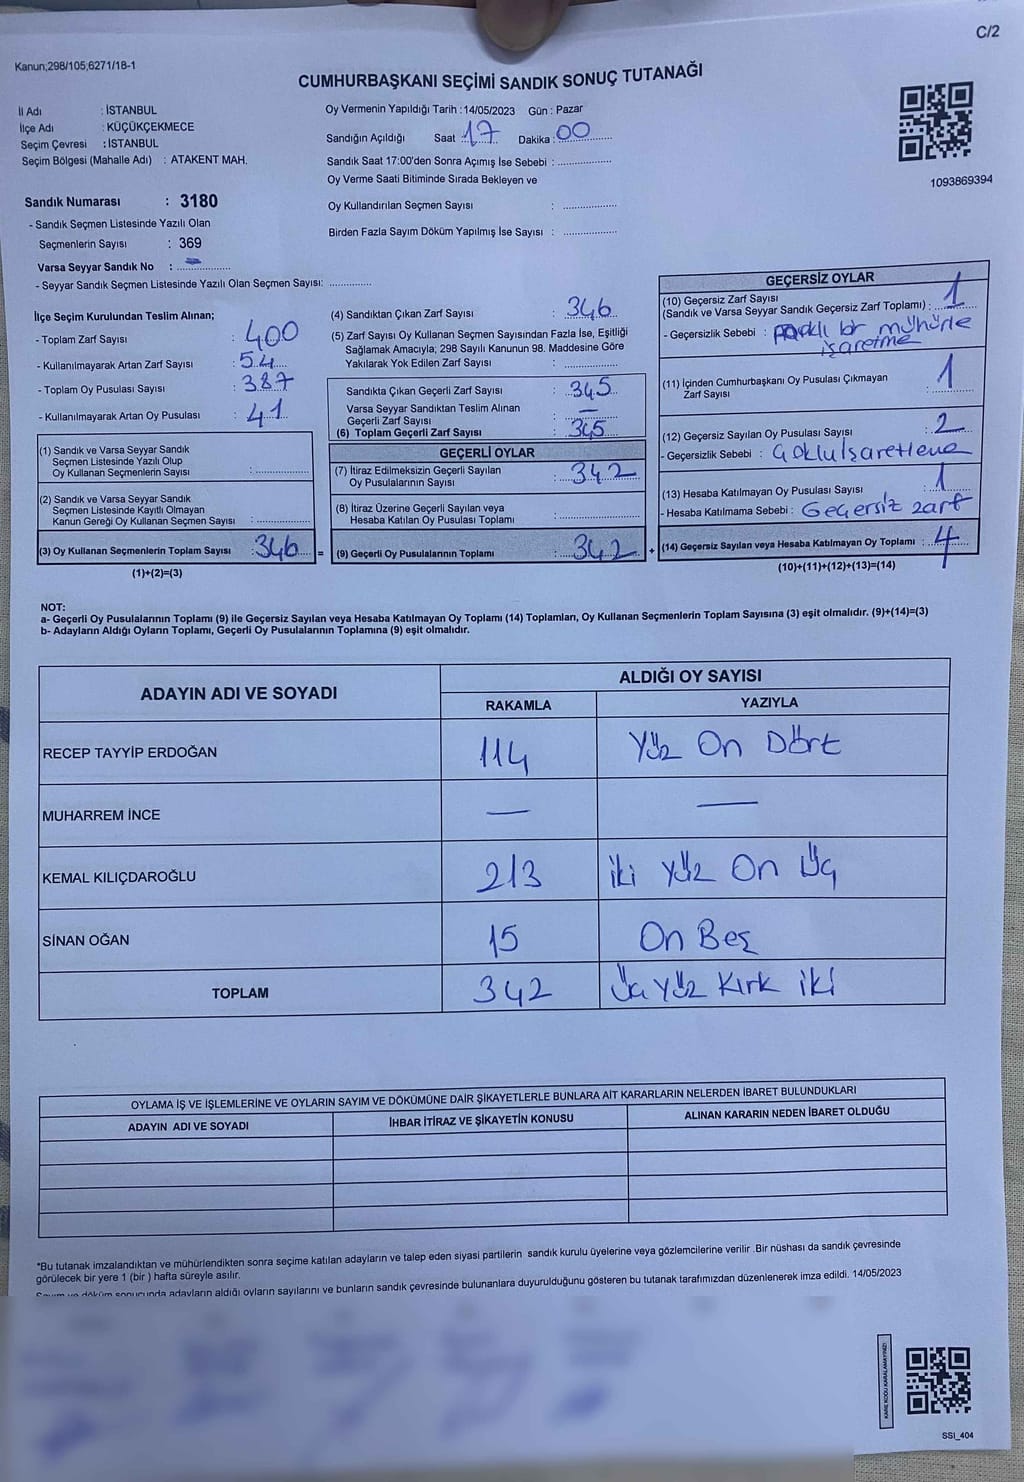 C/2
Kanun;298/105;6271/18-1
CUMHURBAŞKANI SEÇİMİ SANDIK SONUÇ TUTANAĞI
İl Adı : İSTANBUL
İlçe Adı : KÜÇÜKÇEKMECE
Seçim Çevresi : İSTANBUL
Seçim Bölgesi (Mahalle Adı) : ATAKENT MAH.
Oy Vermenin Yapıldığı Tarih :14/05/2023 Gün : Pazar
Sandığın Açıldığı Saat 17 Dakika : 00
Sandık Saat 17:00'den Sonra Açımış İse Sebebi : ................
Oy Verme Saati Bitiminde Sırada Bekleyen ve
Oy Kullandırılan Seçmen Sayısı : ................
Birden Fazla Sayım Döküm Yapılmış İse Sayısı : ................
1093869394
Sandık Numarası : 3180
- Sandık Seçmen Listesinde Yazılı Olan
Seçmenlerin Sayısı : 369
Varsa Seyyar Sandık No : –
- Seyyar Sandık Seçmen Listesinde Yazılı Olan Seçmen Sayısı: ............
İlçe Seçim Kurulundan Teslim Alınan;
- Toplam Zarf Sayısı : 400
- Kullanılmayarak Artan Zarf Sayısı : 54
- Toplam Oy Pusulası Sayısı : 387
- Kullanılmayarak Artan Oy Pusulası : 41
(1) Sandık ve Varsa Seyyar Sandık
Seçmen Listesinde Yazılı Olup
Oy Kullanan Seçmenlerin Sayısı : ................
(2) Sandık ve Varsa Seyyar Sandık
Seçmen Listesinde Kayıtlı Olmayan
Kanun Gereği Oy Kullanan Seçmen Sayısı : ................
(3) Oy Kullanan Seçmenlerin Toplam Sayısı : 346 =
(1)+(2)=(3)
(4) Sandıktan Çıkan Zarf Sayısı : 346
(5) Zarf Sayısı Oy Kullanan Seçmen Sayısından Fazla İse, Eşitliği
Sağlamak Amacıyla; 298 Sayılı Kanunun 98. Maddesine Göre
Yakılarak Yok Edilen Zarf Sayısı : ................
Sandıkta Çıkan Geçerli Zarf Sayısı : 345
Varsa Seyyar Sandıktan Teslim Alınan
Geçerli Zarf Sayısı : —
(6) Toplam Geçerli Zarf Sayısı : 345
GEÇERLİ OYLAR
(7) İtiraz Edilmeksizin Geçerli Sayılan
Oy Pusulalarının Sayısı : 342
(8) İtiraz Üzerine Geçerli Sayılan veya
Hesaba Katılan Oy Pusulası Toplamı : ................
(9) Geçerli Oy Pusulalarının Toplamı : 342 +
GEÇERSİZ OYLAR
(10) Geçersiz Zarf Sayısı
(Sandık ve Varsa Seyyar Sandık Geçersiz Zarf Toplamı) : 1
- Geçersizlik Sebebi : farklı bir mühürle
işaretme
(11) İçinden Cumhurbaşkanı Oy Pusulası Çıkmayan
Zarf Sayısı : 1
(12) Geçersiz Sayılan Oy Pusulası Sayısı : 2
- Geçersizlik Sebebi : Çoklu İşaretleme
(13) Hesaba Katılmayan Oy Pusulası Sayısı : 1
- Hesaba Katılmama Sebebi : Geçersiz zarf
(14) Geçersiz Sayılan veya Hesaba Katılmayan Oy Toplamı : 4
(10)+(11)+(12)+(13)=(14)
NOT:
a- Geçerli Oy Pusulalarının Toplamı (9) ile Geçersiz Sayılan veya Hesaba Katılmayan Oy Toplamı (14) Toplamları, Oy Kullanan Seçmenlerin Toplam Sayısına (3) eşit olmalıdır. (9)+(14)=(3)
b- Adayların Aldığı Oyların Toplamı, Geçerli Oy Pusulalarının Toplamına (9) eşit olmalıdır.
ADAYIN ADI VE SOYADI
ALDIĞI OY SAYISI
RAKAMLA YAZIYLA
RECEP TAYYİP ERDOĞAN 114 Yüz On Dört
MUHARREM İNCE — —
KEMAL KILIÇDAROĞLU 213 iki yüz On Üç
SİNAN OĞAN 15 On Beş
TOPLAM 342 Üç Yüz Kırk iki
OYLAMA İŞ VE İŞLEMLERİNE VE OYLARIN SAYIM VE DÖKÜMÜNE DAİR ŞİKAYETLERLE BUNLARA AİT KARARLARIN NELERDEN İBARET BULUNDUKLARI
ADAYIN ADI VE SOYADI İHBAR İTİRAZ VE ŞİKAYETİN KONUSU ALINAN KARARIN NEDEN İBARET OLDUĞU
*Bu tutanak imzalandıktan ve mühürlendikten sonra seçime katılan adayların ve talep eden siyasi partilerin sandık kurulu üyelerine veya gözlemcilerine verilir .Bir nüshası da sandık çevresinde
görülecek bir yere 1 (bir ) hafta süreyle asılır.
Sayım ve döküm sonucunda adayların aldığı oyların sayılarını ve bunların sandık çevresinde bulunanlara duyurulduğunu gösteren bu tutanak tarafımızdan düzenlenerek imza edildi. 14/05/2023
KARE KODU KARALAMAYINIZ!
SSI_404